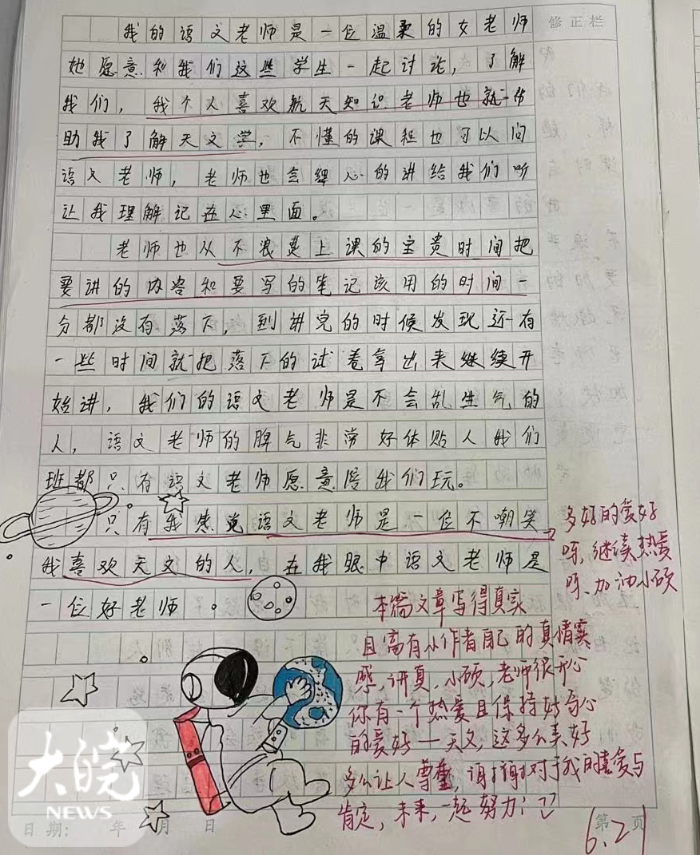 我的语文老师是一位温柔的女老师
修正栏
她愿意和我们这些学生一起讨论，了解
我们，我个人喜欢航天知识老师也就一
助我了解天文学，不懂的课程也可以问
语文老师，老师也会细心的讲给我们听
让我理解记在心里面。
老师也从不浪费上课的宝贵时间把
要讲的内容和要写的笔记该用的时间一
分都没有落下，到讲完的时候发现还有
一些时间就把落下的试卷拿出来继续开
始讲，我们的语文老师是不会乱生气的
人，语文老师的脾气非常好体贴人我们
班都只有语文老师愿意陪我们玩。
只有我感觉语文老师是一位不嘲笑
我喜欢天文的人，在我眼中语文老师是
一位好老师。
多好的爱好
呀，继续热爱
呀、加油小硕
本篇文章写得真实
且富有小作者自己的真情实
感，讲真，小硕，老师很开心
你有一个热爱且保持好奇心
的爱好——天文，这多么美好
多么让人尊重，谢谢对于我的喜爱与
肯定，未来，一起努力！
6.21
大皖
NEWS
日期： 年 月 日
第 页